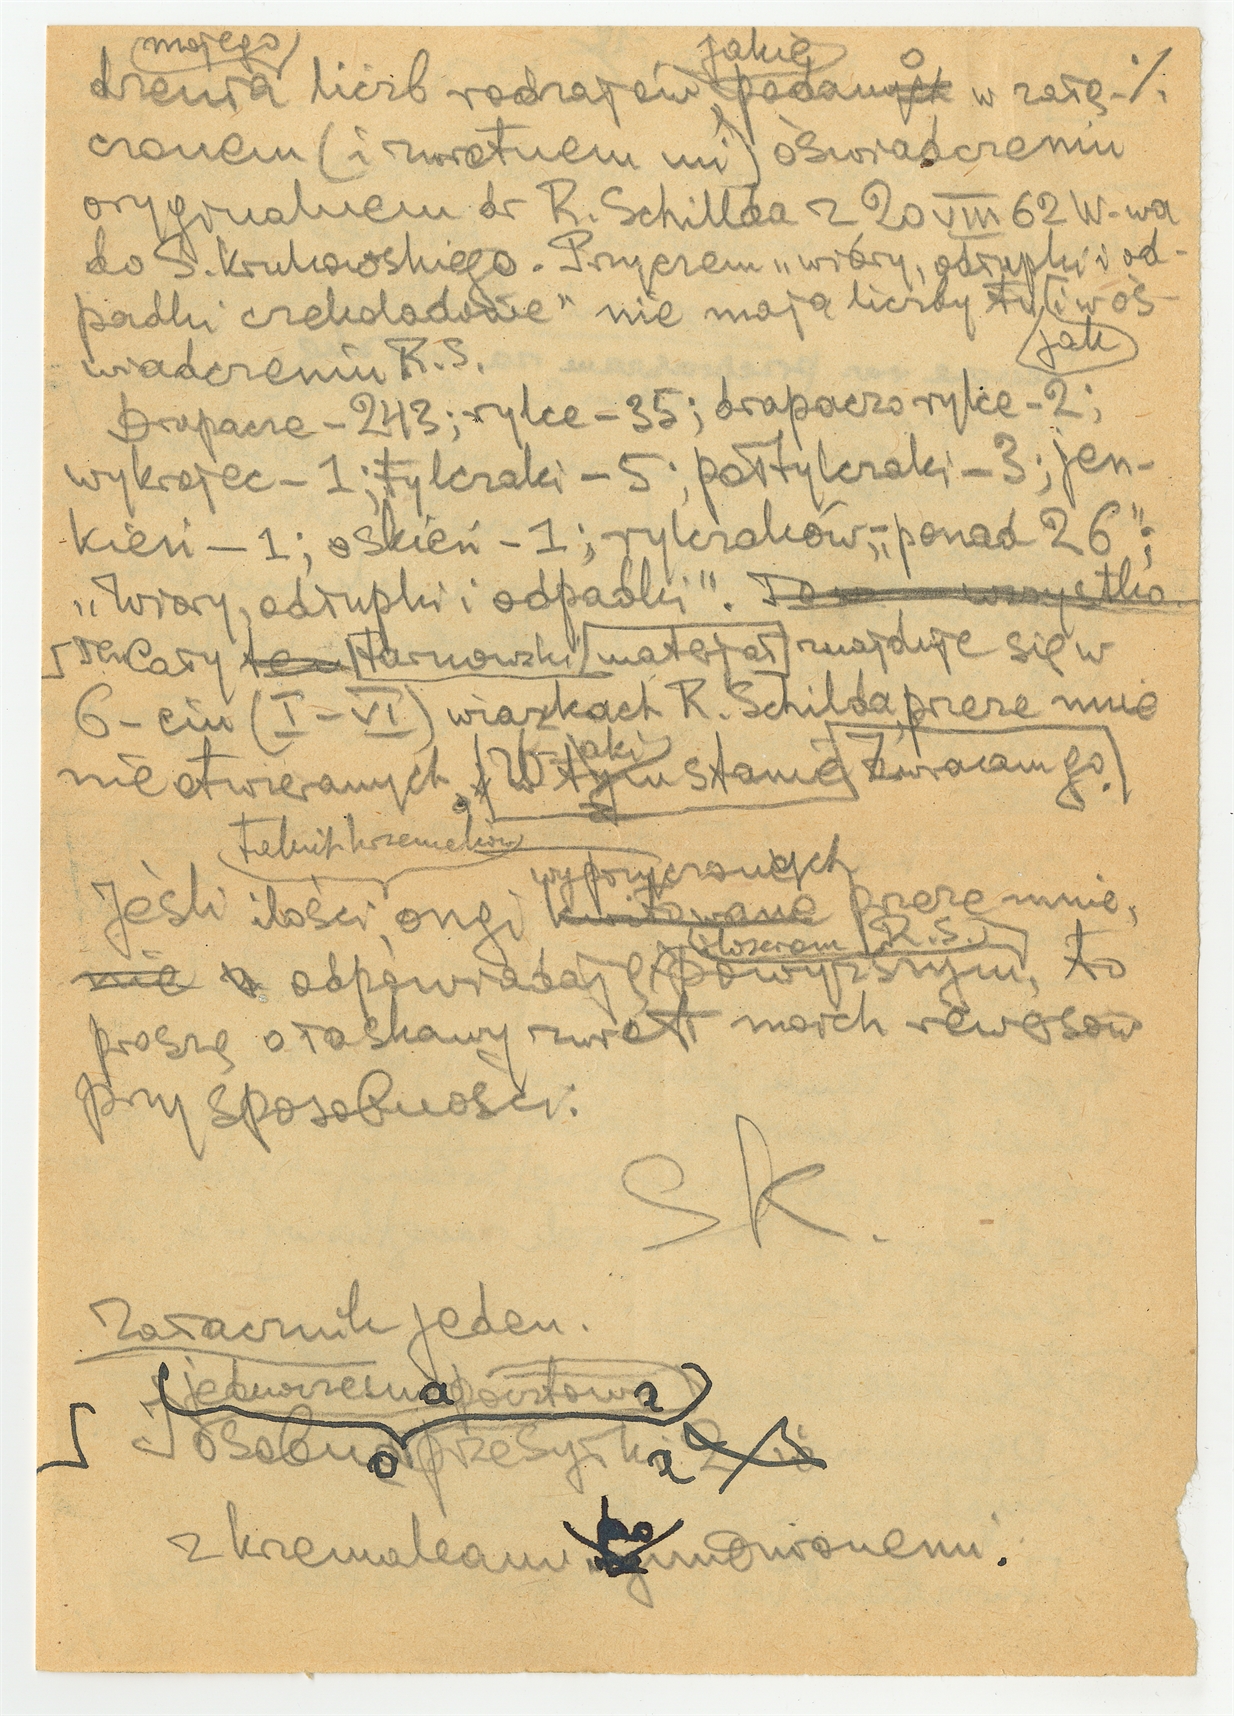 mojego jakie o
drenia liczb rodzajów, podanych w załą-%
czonem (i zwrotnem mi) oświadczeniu
oryginalnem dr R. Schilda z 20 VIII 62 W-wa
do S. Krukowskiego. Przyczem „wióry, odłupki i od-
padki czekoladowe" nie mają liczby tu i w oś-
jak
wiadczeniu R.S.
Drapacze - 243; rylce - 35; drapaczorylce - 2;
wykrojec - 1; tylczaki - 5; półtylczaki - 3; jen-
kień - 1; oskień - 1; rylczaków - „ponad 26";
„Wióry, odłupki i odpadki". To wszystko
Ten Cały ten tarnowski materjał znajduje się w
6-ciu (I-VI) wiązkach R. Schilda, przeze mnie
jaki
nieotwieranych. W tym stanie zwracam go.
tekich krzemieków
wypożyczonych
Jeśli ilości, ongi kwitowane przeze mnie,
R.S.
nie odpowiadają powyższym, to
proszę o łaskawy zwrot moich rewersów
przy sposobności.
SK.
Załącznik jeden.
(jednoczesna pocztowa)
I osobno przesyłki 2
z krzemieniami wymówionemi.